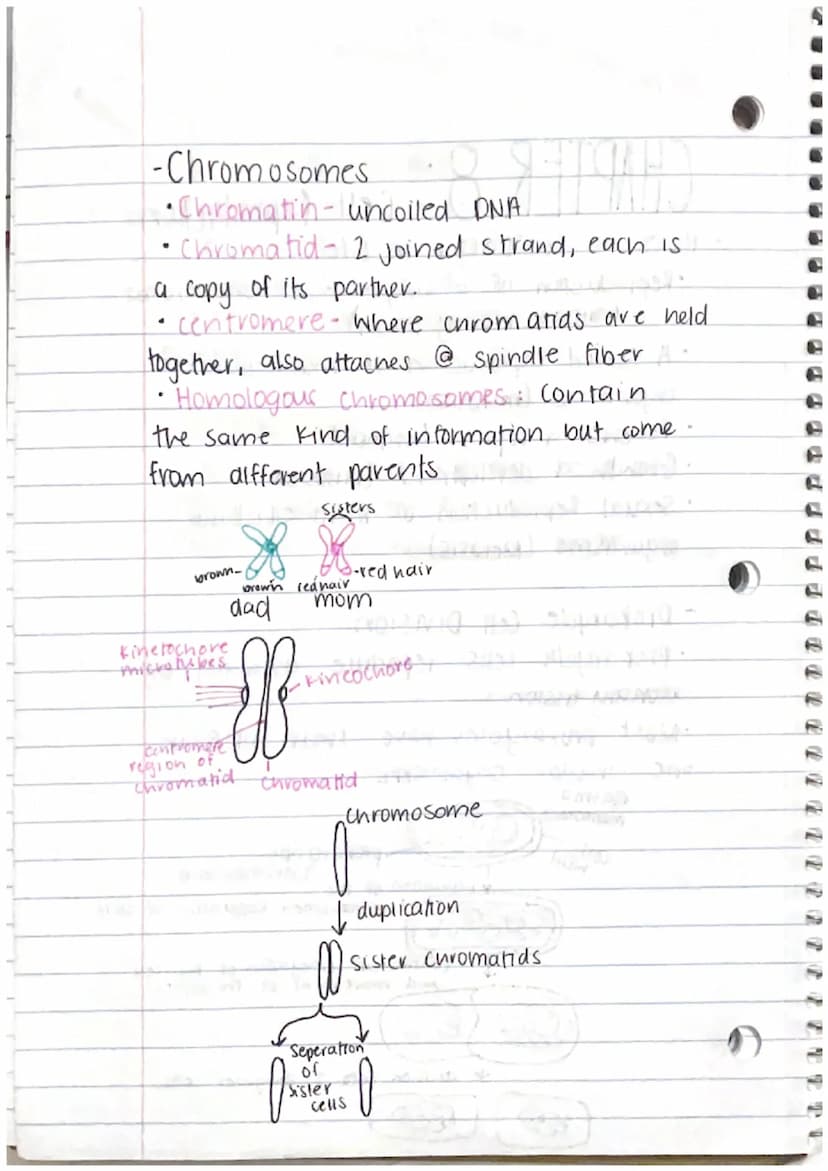 -Chromosomes
•Chromatin- uncoiled DNA
•Chromatid- 2 joined strand, each is
a copy of its partner.
•centromere- where chromatids are held
together, also attaches @ spindle fiber
•Homologous chromosomes: contain
the same kind of information but come
from different parents
sisters
brown-
brown
red hair
-red hair
dad
mom
Kinetochore
microtubes
Kineochore
centromere
region of
chromatid
chromatid
chromosome
duplication
sister chromatids
Seperation
of
sister
cells